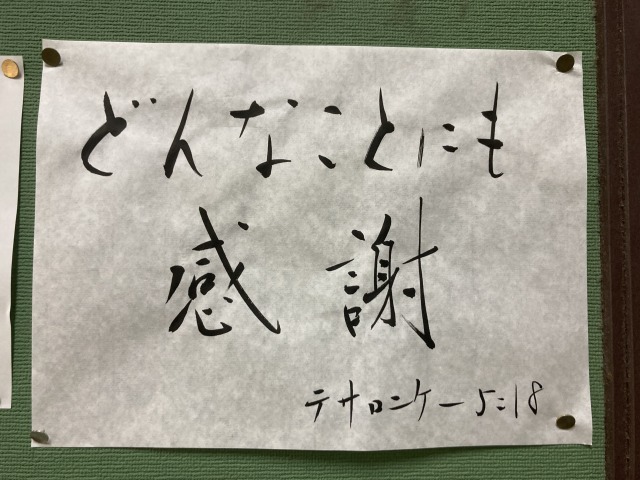 どんなことにも
感謝
テサロンケー5:18